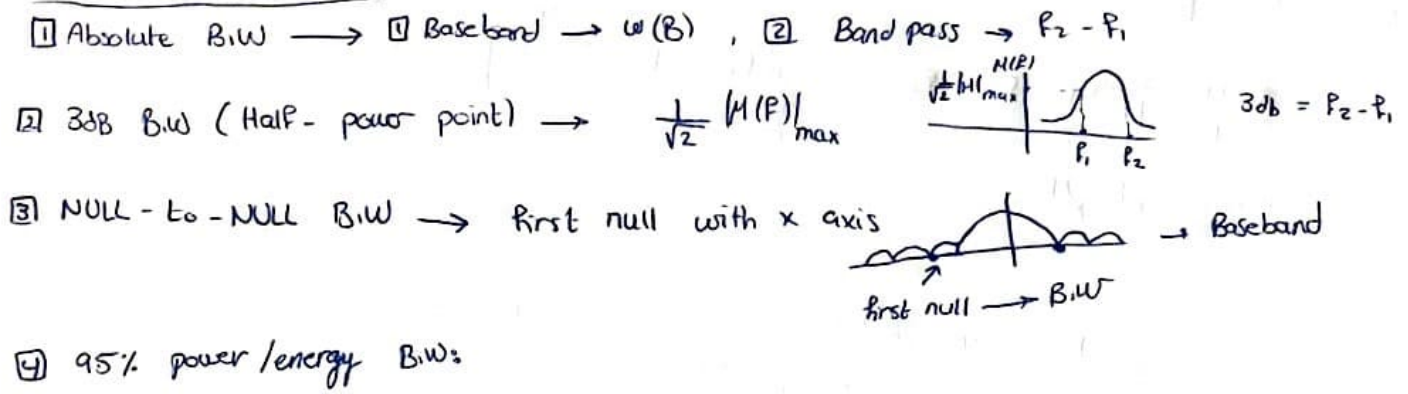 1 Absolute B.W → 1 Baseband → w(B) , 2 Band pass → f₂ - f₁
2 3dB B.W (Half - power point) → 1/√2 |H(f)|max
H(f)
1/√2 |H|max
f₁ f₂
3db = f₂ - f₁
3 NULL - to - NULL B.W → first null with x axis → Baseband
first null → B.W
4 95% power/energy B.W: